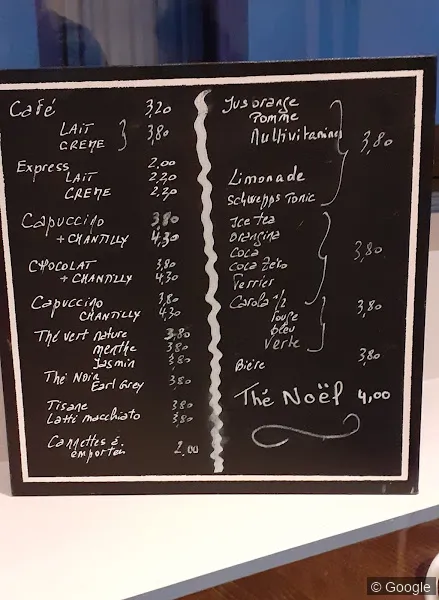 Café 3,20
LAIT
CREME 3,80
Express 2,00
LAIT 2,20
CREME 2,20
Capuccino 3,80
+ CHANTILLY 4,30
CHOCOLAT 3,80
+ CHANTILLY 4,30
Capuccino 3,80
CHANTILLY 4,30
Thé vert nature 3,80
menthe 3,80
Jasmin 3,80
Thé Noir
Earl Grey 3,80
Tisane 3,80
Latte macchiato 3,80
Cannettes à
emporter 2,00
Jus orange
Pomme
Multivitamines
3,80
Limonade
Schwepps Tonic
Ice tea
Orangina
Coca 3,80
Coca Zero
Perrier
Carola 1/2 3,80
rouge
bleu
Verte
Bière 3,80
Thé Noël 4,00
© Google